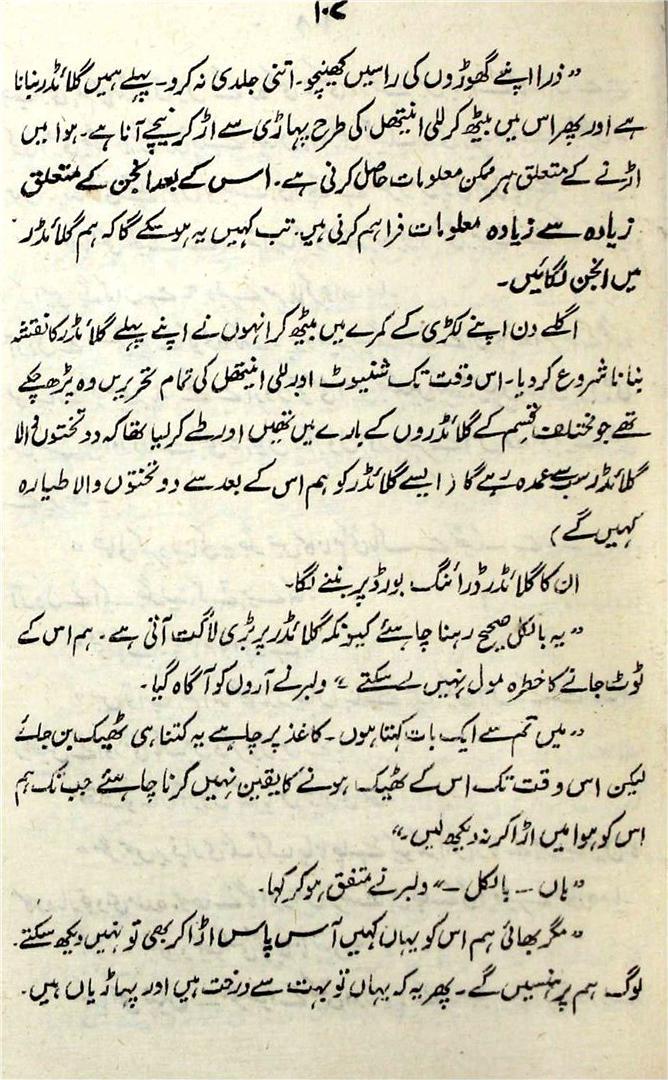 ۱۰۲
”ذرا اپنے گھوڑوں کی راسیں کھینچو۔ اتنی جلدی نہ کرو۔ پہلے ہمیں گلائڈر بنانا
ہے اور پھر اس میں بیٹھ کر للی انیتھل کی طرح پہاڑی سے اڑ کر نیچے آنا ہے۔ ہوا میں
اڑنے کے متعلق ہر ممکن معلومات حاصل کرنی ہے۔ اس کے بعد انجن کے متعلق
زیادہ سے زیادہ معلومات فراہم کرنی ہیں۔ تب کہیں یہ ہو سکے گا کہ ہم گلائڈر
میں انجن لگائیں۔
اگلے دن اپنے لکڑی کے کمرے میں بیٹھ کر انہوں نے اپنے پہلے گلائڈر کا نقشہ
بنانا شروع کر دیا۔ اس وقت تک شنیوٹ اور للی انیتھل کی تمام تحریریں وہ پڑھ چکے
تھے جو مختلف قسم کے گلائڈروں کے بارے میں تھیں اور طے کر لیا تھا کہ دو تختوں والا
گلائڈر سب سے عمدہ رہے گا (ایسے گلائڈر کو ہم اس کے بعد سے دو تختوں والا طیارہ
کہیں گے)
ان کا گلائڈر ڈرائنگ بورڈ پر بننے لگا۔
”یہ بالکل صحیح رہنا چاہئے کیونکہ گلائڈر پر بڑی لاگت آتی ہے۔ ہم اس کے
ٹوٹ جانے کا خطرہ مول نہیں لے سکتے“ ولبر نے آرول کو آگاہ کیا۔
”میں تم سے ایک بات کہتا ہوں۔ کاغذ پر چاہے یہ کتنا ہی ٹھیک بن جائے
لیکن اس وقت تک اس کے ٹھیک ہونے کا یقین نہیں کرنا چاہئے جب تک ہم
اس کو ہوا میں اڑا کر نہ دیکھ لیں۔“
”ہاں — بالکل —“ ولبر نے متفق ہو کر کہا۔
”مگر بھائی ہم اس کو یہاں کہیں آس پاس اڑا کر بھی تو نہیں دیکھ سکتے۔
لوگ ہم پر ہنسیں گے۔ پھر یہ کہ یہاں تو بہت سے درخت ہیں اور پہاڑیاں ہیں۔